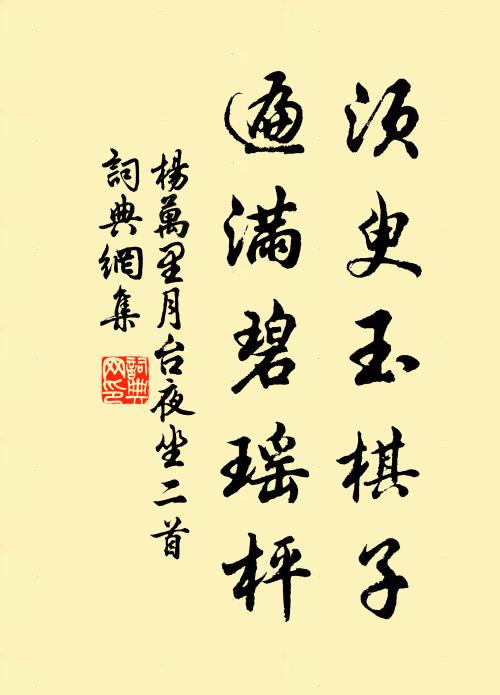 須臾玉棋子
遍滿碧瑶枰
楊萬里月台夜坐二首
詞典網集
詞典网印